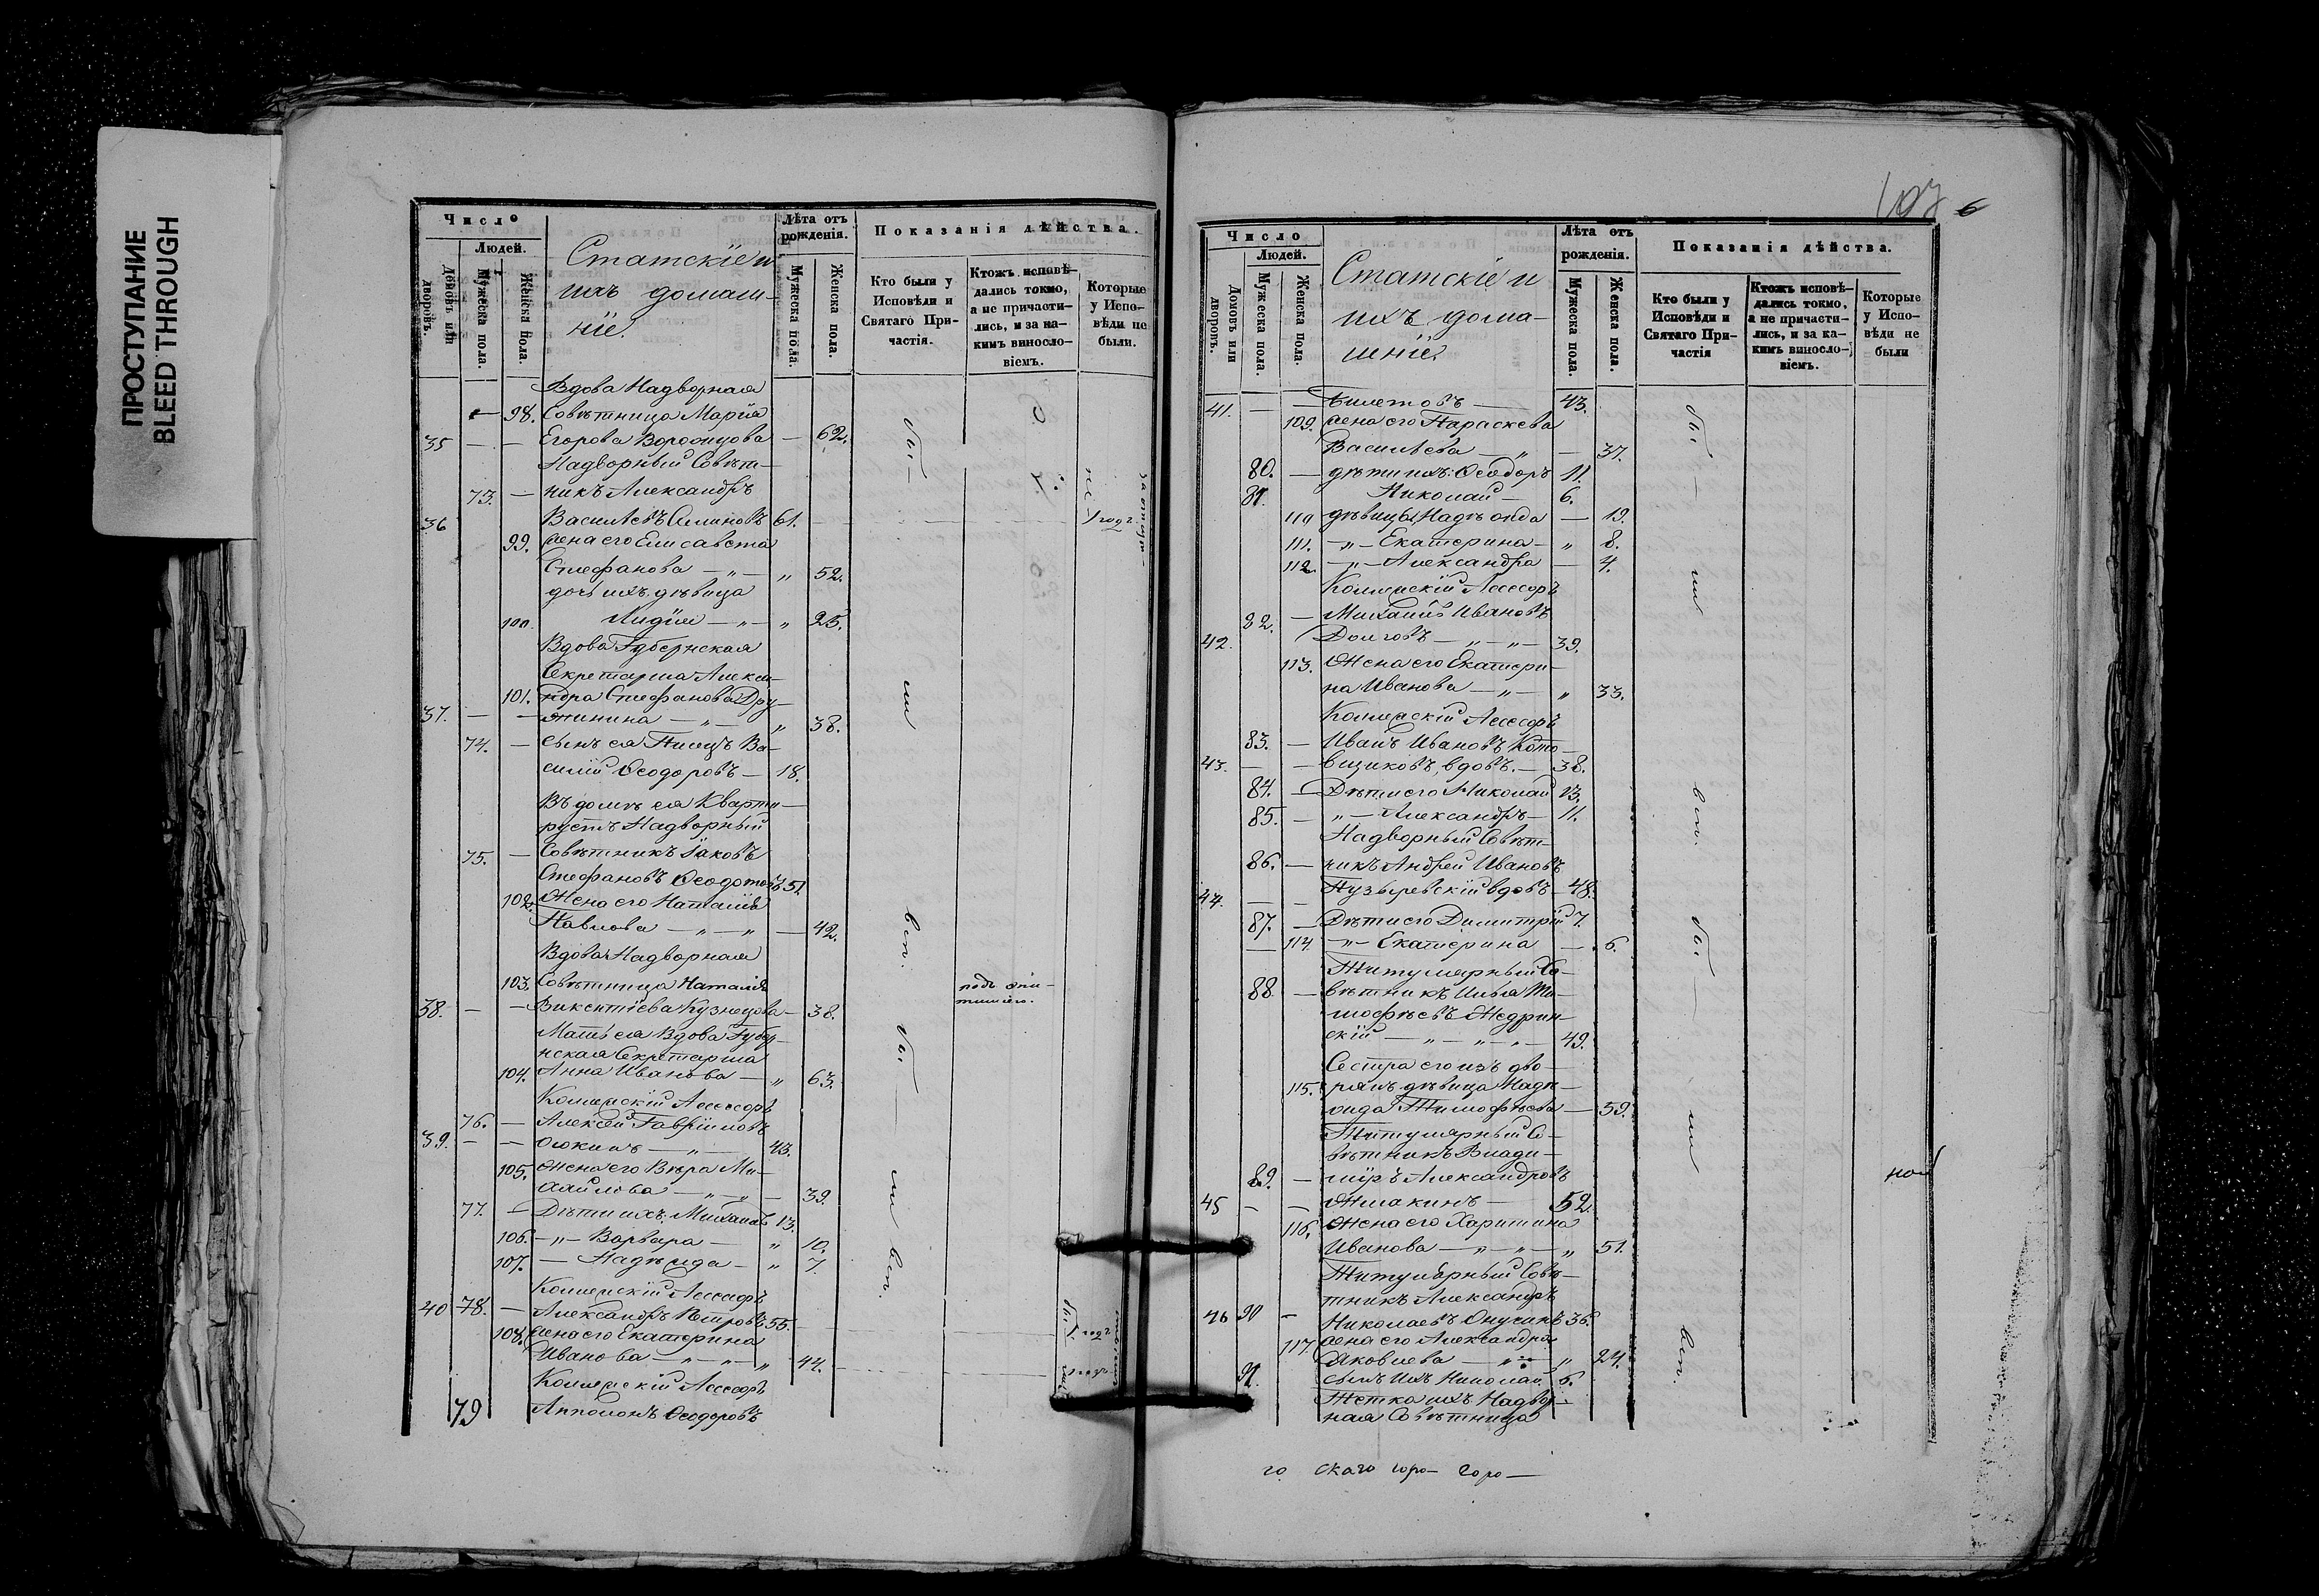 ПРОСТУПАНИЕ
BLEED THROUGH
Число
Людей.
Домовъ или дворовъ.
Мужеска пола.
Женска пола.
Статскіе и
ихъ домаш-
ніе.
Лѣта отъ рожденія.
Мужеска пола.
Женска пола.
Показанія дѣйства.
Кто были у Исповѣди и Святаго При-частія.
Ктожъ исповѣ-дались токмо, а не причасти-лись, и за ка-кимъ винosло-віемъ.
Которые у Испо-вѣди не были.
Вдова Надворная
— 98. Совѣтница Марія
35 — — Егорова — 62.
Надворный Совѣт-
73. — никъ Александръ
36 Васильевъ 61. 1 годъ
99. жена его Елисавета
Стефанова — „ — „ 52.
дочь ихъ дѣвица
100. Лидія — „ — „ 25.
Вдова Губернская
Секретарша Алекса-
101. ндра Стефанова Дру-
37. — — жинина — „ — „ 38.
74. — сынъ ея Писецъ Ва-
силій Ѳеодоровъ — 18.
Въ домѣ ея Кварти-
руетъ Надворный
75. — Совѣтникъ Іаковъ
Стефановъ Ѳеодотовъ 51.
102. Жена его Наталія
Павлова — „ — „ — 42.
Вдова Надворная
103. Совѣтница Наталія
38. — — Викентіева Кузнецова — 38.
подъ эпи-
тиміею.
Мать ея Вдова Губер-
нская Секретарша
104. Анна Иванова — „ 63.
Коллежскій Ассесоръ
76. — Алексѣй Гавріиловъ
39. — — — „ — 43.
105. Жена его Вѣра Ми-
хайлова — „ — „ — 39.
77. — Дѣти ихъ: Михаилъ 13.
106. — „ — Варвара — „ 10.
107. — Надежда — „ 7.
Коллежскій Ассесоръ
40 78. — Александръ Петровъ 55.
108. жена его Екатерина
Иванова — „ — „ — „ 44.
Коллежскій Ассесоръ
79 Апполонъ Ѳеодоровъ
бы — ли вст. бы — ли вст.
107 6
Число
Людей.
Домовъ или дворовъ.
Мужеска пола.
Женска пола.
Статскіе и
ихъ дома-
шніе.
Лѣта отъ рожденія.
Мужеска пола.
Женска пола.
Показанія дѣйства.
Кто были у Исповѣди и Святаго При-частія
Ктожъ исповѣ-дались токмо, а не причасти-лись, и за ка-кимъ винosло-віемъ.
Которые у Испо-вѣди не были
41. — — Билетовъ — 43.
109. жена его Параскева
Васильева — „ — 37.
80. — дѣти ихъ: Ѳеодоръ 11.
81. Николай — 6.
110 дѣвицы Надежда — 19.
111. — „ — Екатерина — „ 8.
112. — „ — Александра — 4.
Коллежскій Ассесоръ
82. — Михаилъ Ивановъ
42. Долговъ — „ — „ — 39.
113. Жена его Екатери-
на Иванова — „ — „ 33.
Коллежскій Ассесоръ
83. — Иванъ Ивановъ Кото-
43. — — вщиковъ, вдовъ. — 38.
84. — Дѣти его Николай 13.
85. — „ — Александръ — 11.
Надворный Совѣт-
86. — никъ Андрей Ивановъ
44. — — Пузыревскій вдовъ — 48.
87. — Дѣти его Димитрій 7.
— 114. — „ — Екатерина — 6.
Титулярный Со-
88 — вѣтникъ Илья Ти-
мофѣевъ Жедрин-
скій — „ — „ — „ — 49.
Сестра его изъ дво-
115. рянъ дѣвица Наде-
жда Тимофѣева — 59.
Титулярный Со-
вѣтникъ Влади-
89. — міръ Александровъ
45 — — Жмакинъ — 52.
116. Жена его Харитина
Иванова — „ — „ — „ 51.
Титулярный Совѣ-
тникъ Александръ
46 90 — Николаевъ Онучинъ 36.
117. жена его Александра
Яковлева — „ — „ 24.
91. сынъ ихъ Николай 6.
Тетка ихъ Надвор-
ная Совѣтница
бы — ли вст. бы — ли вст.
го скаго горо- Горо-